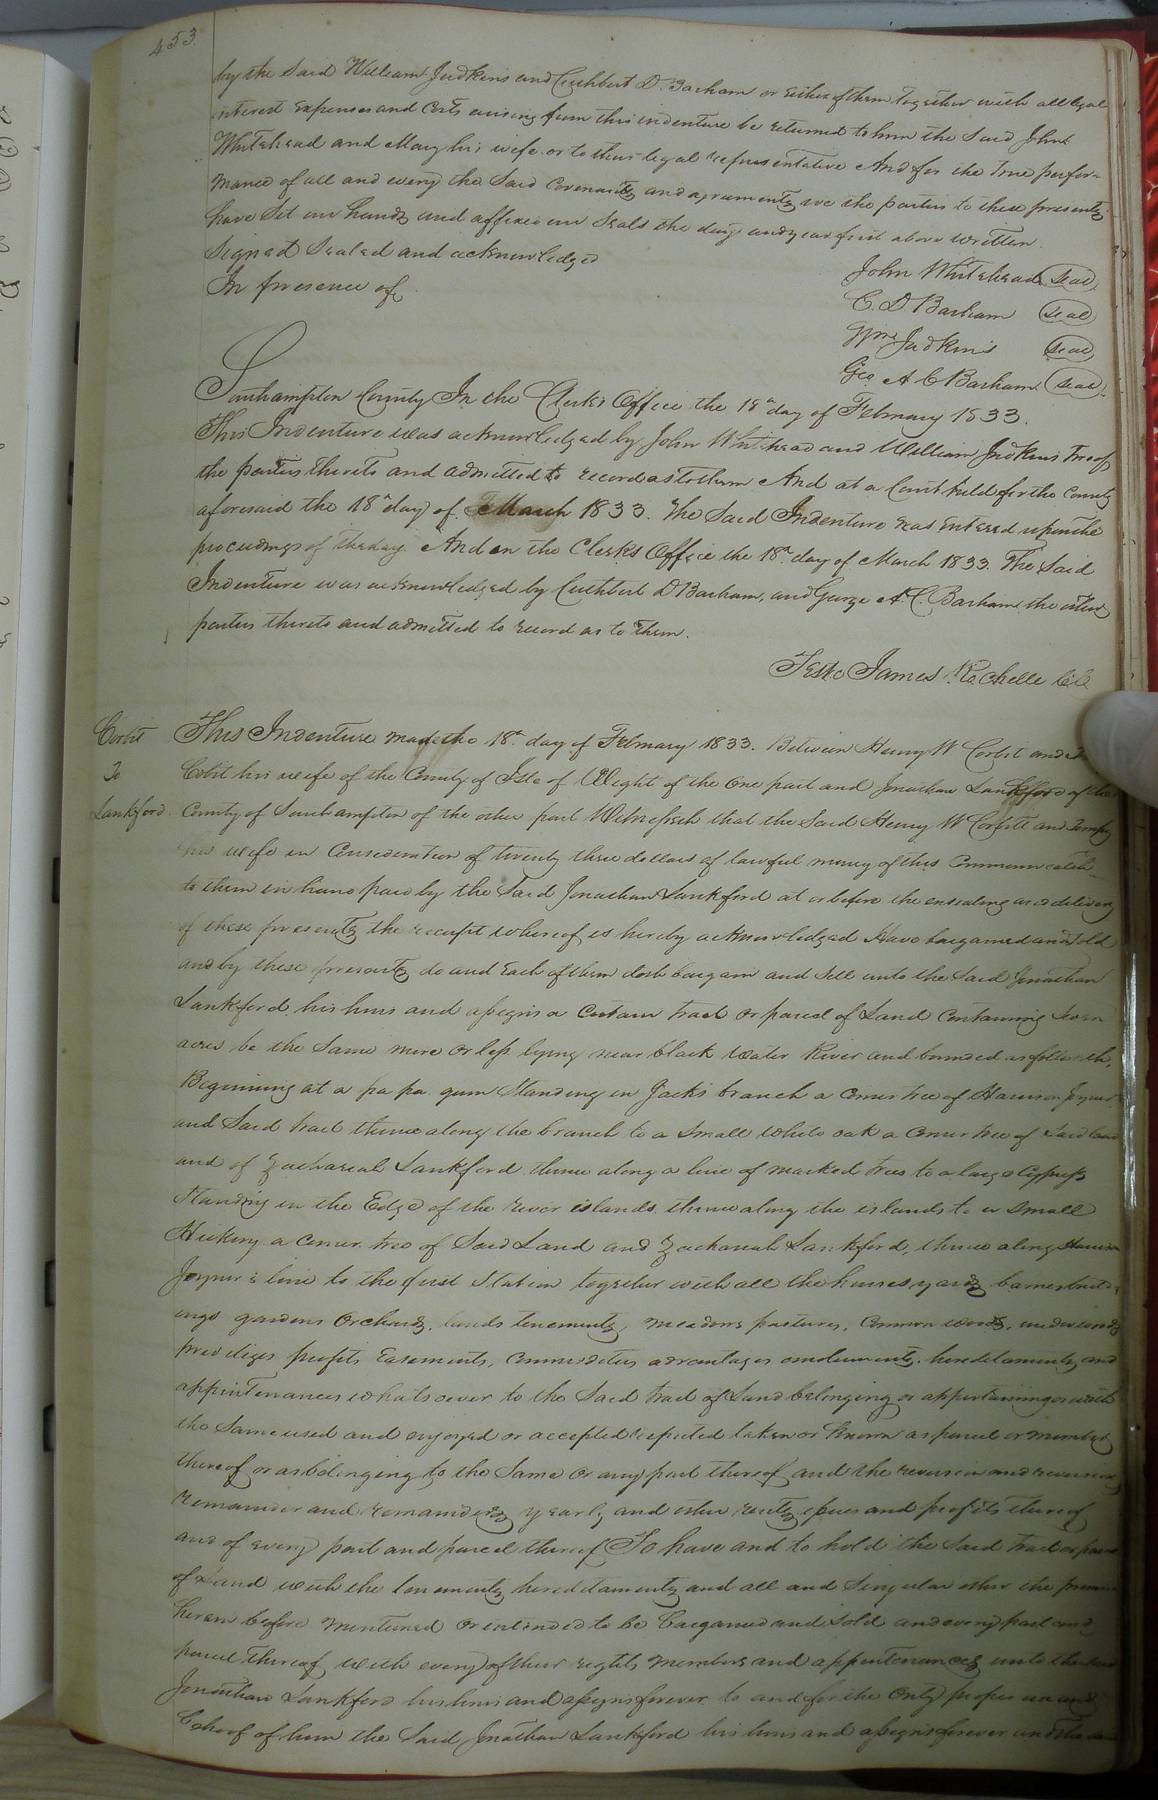 453
by the Said William Judkins and Cuthbert D. Barham or Either of them together with all legal
interest Expenses and Costs arising from this indenture be returned to him the Said John
Whitehead and Mary his wife or to their legal representative And for the true perfor-
mance of all and every the Said Covenants and agraements we the parties to these presents
have Set our hands and affixed our Seals the day and year first above written.
Signed Sealed and acknowledged
In presence of
John Whitehead Seal
C. D Barham Seal
Wm Judkins Seal
Geo A C Barham Seal
Southampton County In the Clerks Office the 18th day of February 1833.
This Indenture was acknowledged by John Whitehead and William Judkins two of
the parties thereto and admitted to record as to them And at a Court held for the County
aforesaid the 18th day of March 1833. The Said Indenture was Entered upon the
proceedings of the day. And in the Clerks Office the 18th day of March 1833. The Said
Indenture was acknowledged by Cuthbert D Barham, and George A. C. Barham the other
parties thereto and admitted to record as to them.
Teste James Rochelle CC
Corbit
To
Lankford
This Indenture made the 18th day of February 1833. Between Henry W Corbit and
Cobit his wife of the County of Isle of Wight of the one part and Jonathan Lankford of the
County of Southampton of the other part Witnesseth that the Said Henry W Corbitt and Tempy
his wife in Consideration of twenty three dollars of lawful money of this Commonwealth
to them in hand paid by the Said Jonathan Lankford at or before the ensealing and delivery
of these presents the receipt whereof is hereby acknowledged Have bargained and Sold
and by these presents do and Each of them doth bargain and Sell unto the Said Jonathan
Lankford his heirs and assigns a Certain tract or parcel of Land Containing Seven
acres be the Same more or less lying near black Water River and bounded as followeth.
Beginning at a pa pa gum Standing in Jacks branch a Corner tree of Harrison Joyner
and Said tract thence along the branch to a Small White oak a Corner tree of Said land
and of Zachareah Lankford thence along a line of marked trees to a large Cypress
Standing in the Edge of the river islands. thence along the islands to a Small
Hickory a Corner tree of Said Land and Zachareah Lankford, thence along Harrison
Joyner's line to the first Station together with all the houses, yards barns build-
ings gardens Orchards, lands tenements, meadows pastures, Common woods, underwoods
priveleges profits Easements, Commodities advantages emoluments. hereditaments and
appurtenances whatsoever to the Said tract of Land belonging or appertaining or with
the Same used and enjoyed or accepted reputed taken or Known as parcel or member
thereof or as belonging to the Same or any part thereof and the reversion and reversions
remainder and remainders yearly and other rents issues and profits thereof
and of every part and parcel thereof To have and to hold the Said tract or parcel
of Land with the tenements hereditaments and all and Singular other the premises
herein before mentioned or intended to be bargained and Sold and every part and
parcel thereof with every of their rights members and appurtenances unto the Said
Jonathan Lankford his heirs and assigns forever to and for the only proper use and
behoof of him the Said Jonathan Lankford his heirs and assigns forever and the